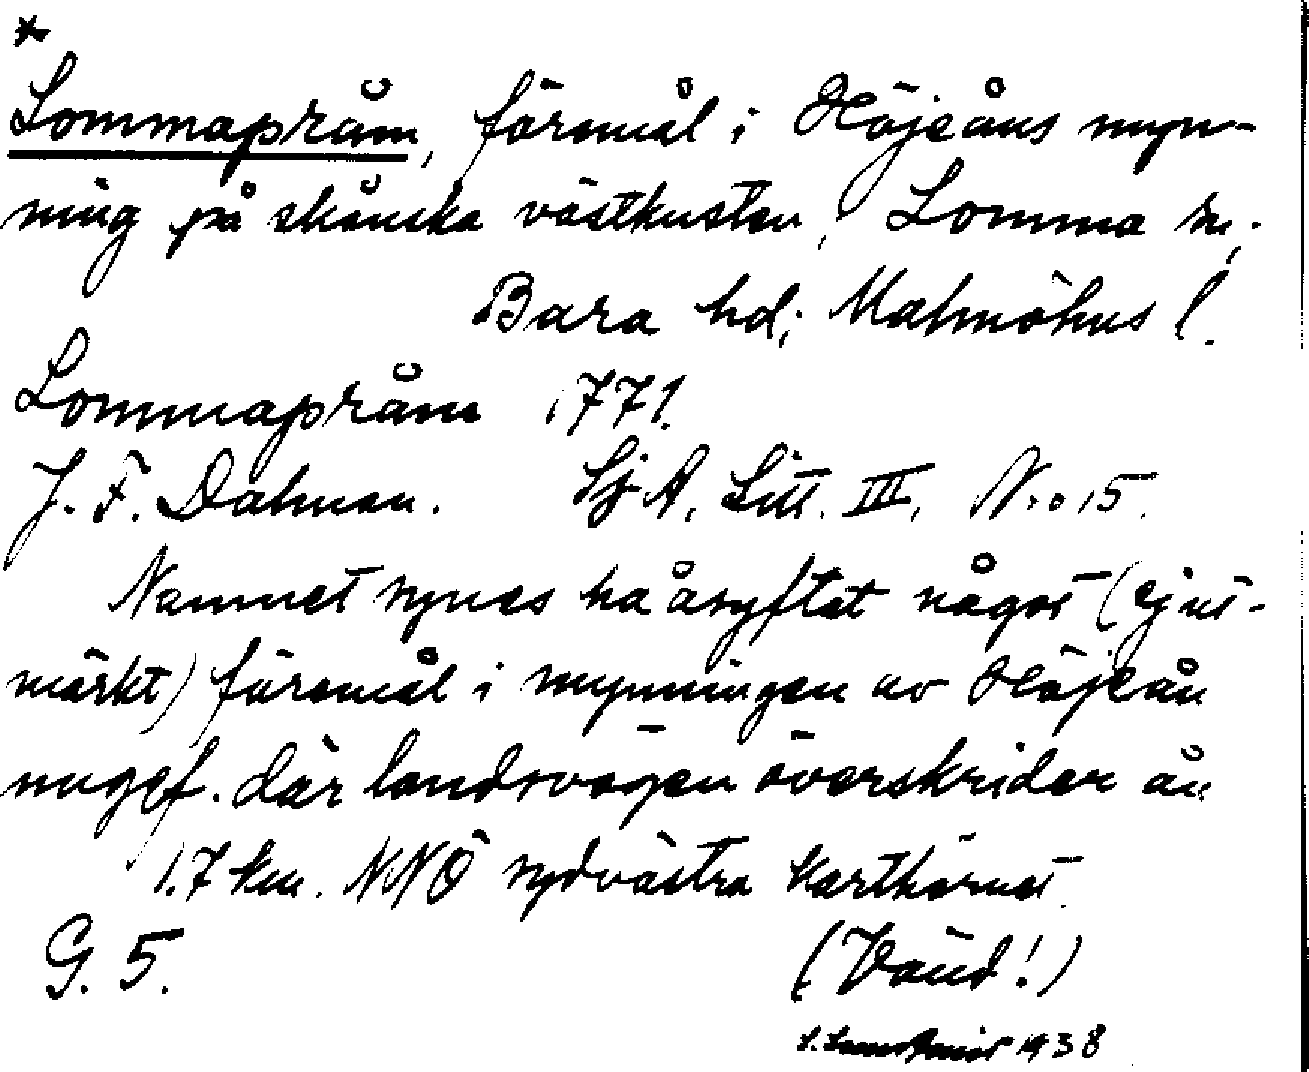 *
Lommapråm, föremål i Höjeåns myn-
ning på skånska västkusten, Lomma sn;
Bara hd; Malmöhus l.
Lommapråm 1771.
J. F. Dalman. Sj A, Litt. III, No 15.
Namnet synes ha åsyftat något (ej ut-
märkt) föremål i mynningen av Höjeån
ungef. där landsvägen överskrider ån
1.7 km. NNÖ sydvästra karthörnet.
G. 5. (Vänd!)
1938